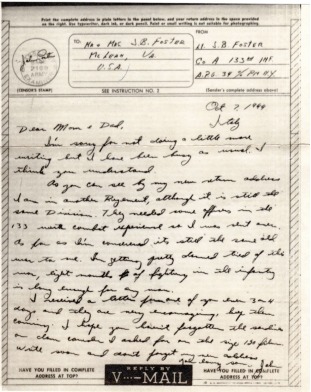 Print the complete address in plain letters in the panel below, and your return address in the space provided on the right. Use typewriter, dark ink, or dark pencil. Paint or small writing is not suitable for photographing.
TO:
Mr & Mrs J.B. Foster
McLean, Va
U.S.A.
FROM
Lt J B Foster
Co A 133rd INF
A.P.O. 34 % PM NY
(CENSOR'S STAMP)
SEE INSTRUCTION NO. 2
(Sender's complete address above)
Oct 7 1944
Italy
Dear Mom & Dad,
I'm sorry for not doing a little more
writing but I have been busy as usual. I
think you understand.
As you can see by my new return address
I am in another Regiment, although it is still the
same Division. They needed some officers in the
133 with combat experience so I was sent over.
As far as I'm concerned it's still the same old
war to me. I'm getting pretty damned tired of this
war, eight months of fighting in the infantry
is long enough for any man.
I received a letter from one of you every 3 or 4
days, and they are very encouraging, keep them
coming. I hope you haven't forgotten the
I asked for on the size 120 film.
Write soon and don't forget my new address
John
HAVE YOU FILLED IN COMPLETE
ADDRESS AT TOP?
REPLY BY
V···-MAIL
HAVE YOU FILLED IN COMPLETE
ADDRESS AT TOP?